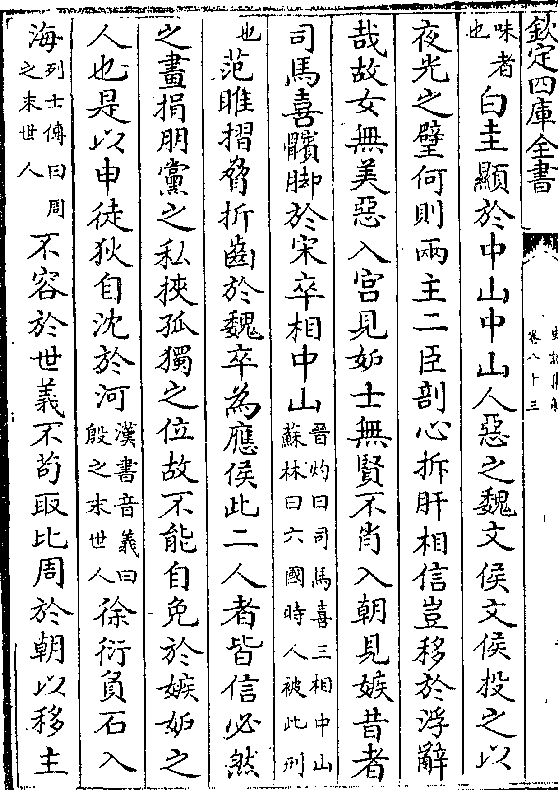 欽定四庫全書
卷八十三
味者也白圭顯於中山中山人惡之魏文侯文侯投之以
夜光之璧何則兩主二臣剖心拆肝相信豈移於浮辭
哉故女無美惡入宫見妬士無賢不肖入朝見嫉昔者
司馬喜髕脚於宋卒相中山晉灼曰司馬喜三相中山蘇林曰六國時人被此刑
也范雎摺脅折齒於魏卒為應侯此二人者皆信必然
之畫捐朋黨之私挾孤獨之位故不能自免於嫉妬之
人也是以申徒狄自沈於河漢書音義曰殷之末世人徐衍負石入
海列士傳曰周之末世人不容於世義不苟取比周於朝以移主